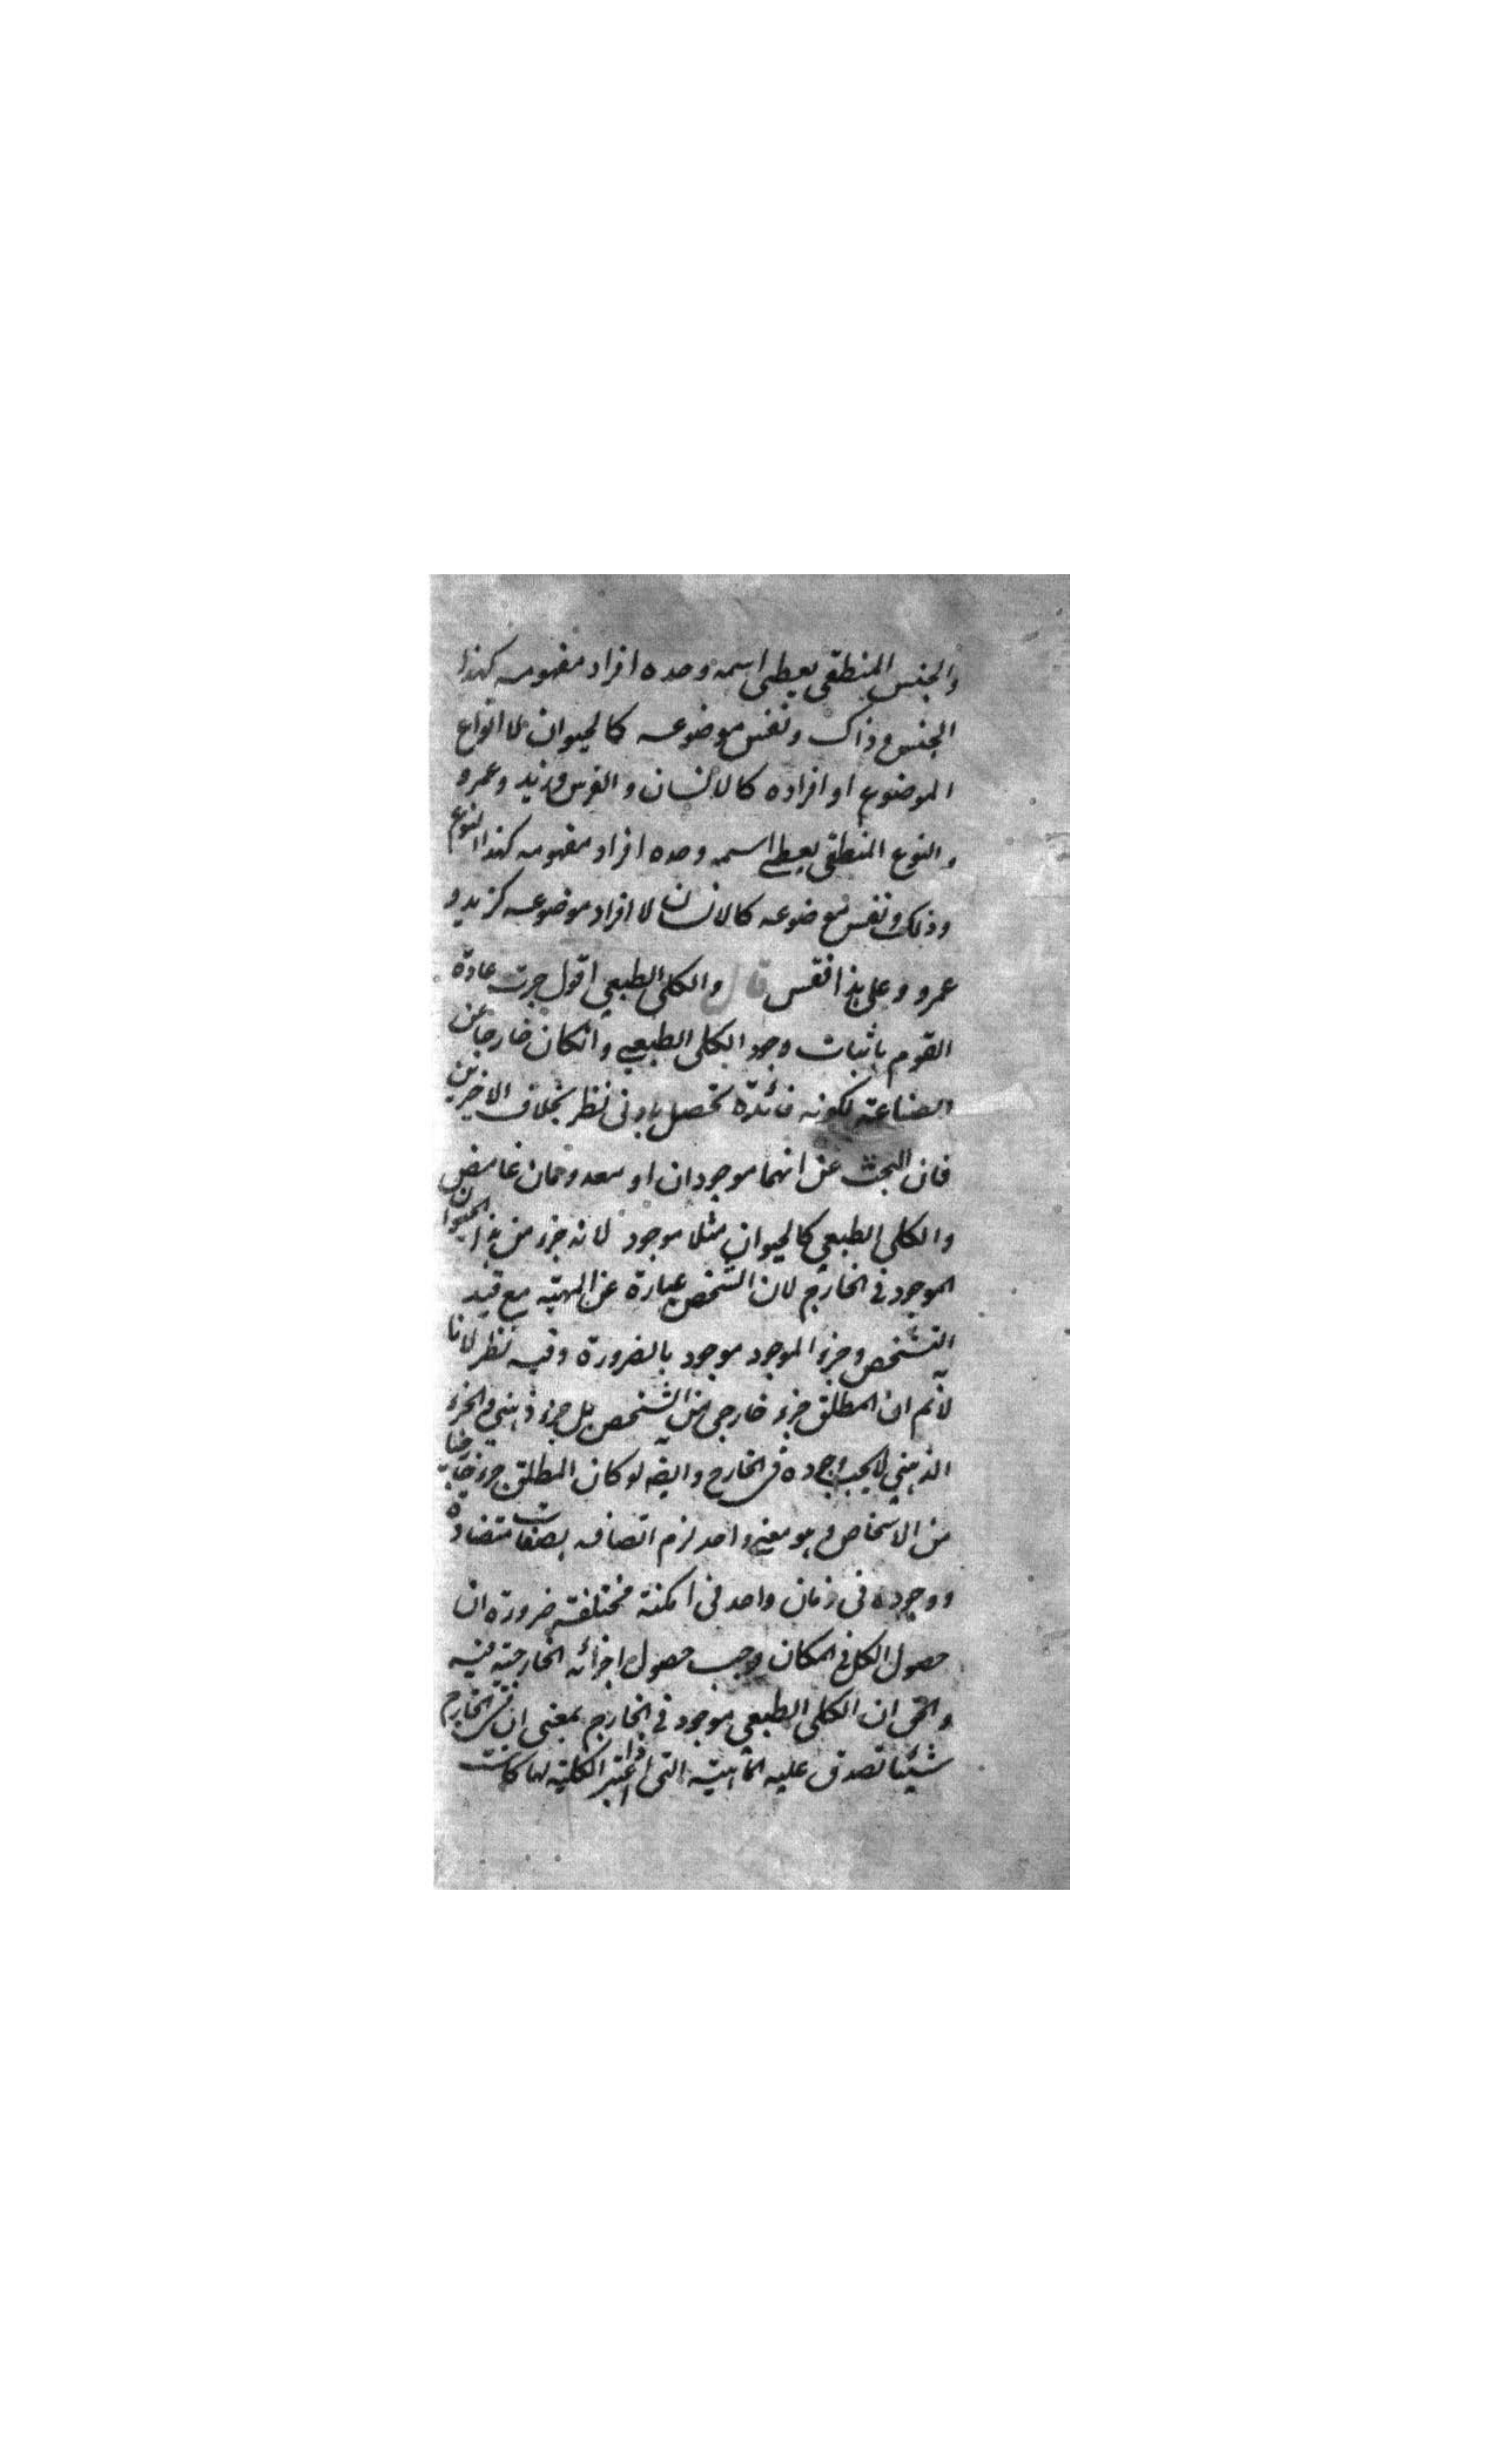 والجنس المنطقى يعطى اسمه وحده افراد مفهومه كهذا
الجنس وذاك ونفس موضوعه كالحيوان لا انواع
الموضوع او افراده كالانسان والفرس وزيد وعمرو
والنوع المنطقى يعطى اسمه وحده افراد مفهومه كهذا النوع
وذلك ونفس موضوعه كالانسان لا افراد موضوعه كزيد و
عمرو وعلى هذا فقس قال والكلى الطبعى اقول جرت عادة
القوم باثبات وجود الكلى الطبعى وانكان خارجا عن
الصناعة لكونه فائدة تحصل بادنى نظر بخلاف الاخرين
فان البحث عن انهما موجودان او معدومان غامض
والكلى الطبعى كالحيوان مثلا موجود لانه جزء من هذا الحيوان
الموجود فى الخارج لان الشخص عبارة عن المهية مع قيد
التشخص وجزء الموجود موجود بالضرورة وفيه نظر لانا
لانم ان المطلق جزء خارجى من الشخص بل جزء ذهنى والجزء
الذهنى لا يجب وجوده فى الخارج وايضه لو كان المطلق جزء خارجيا
من الاشخاص وهو معنى واحد لزم اتصافه بصفات متضادة
ووجوده فى زمان واحد فى امكنة مختلفة ضرورة ان
حصول الكل فى المكان يوجب حصول اجزائه الخارجية فيه
والحق ان الكلى الطبعى موجود فى الخارج بمعنى ان فى الخارج
شيئا تصدق عليه الماهية التى اذا اعتبر الكلية لها كانت